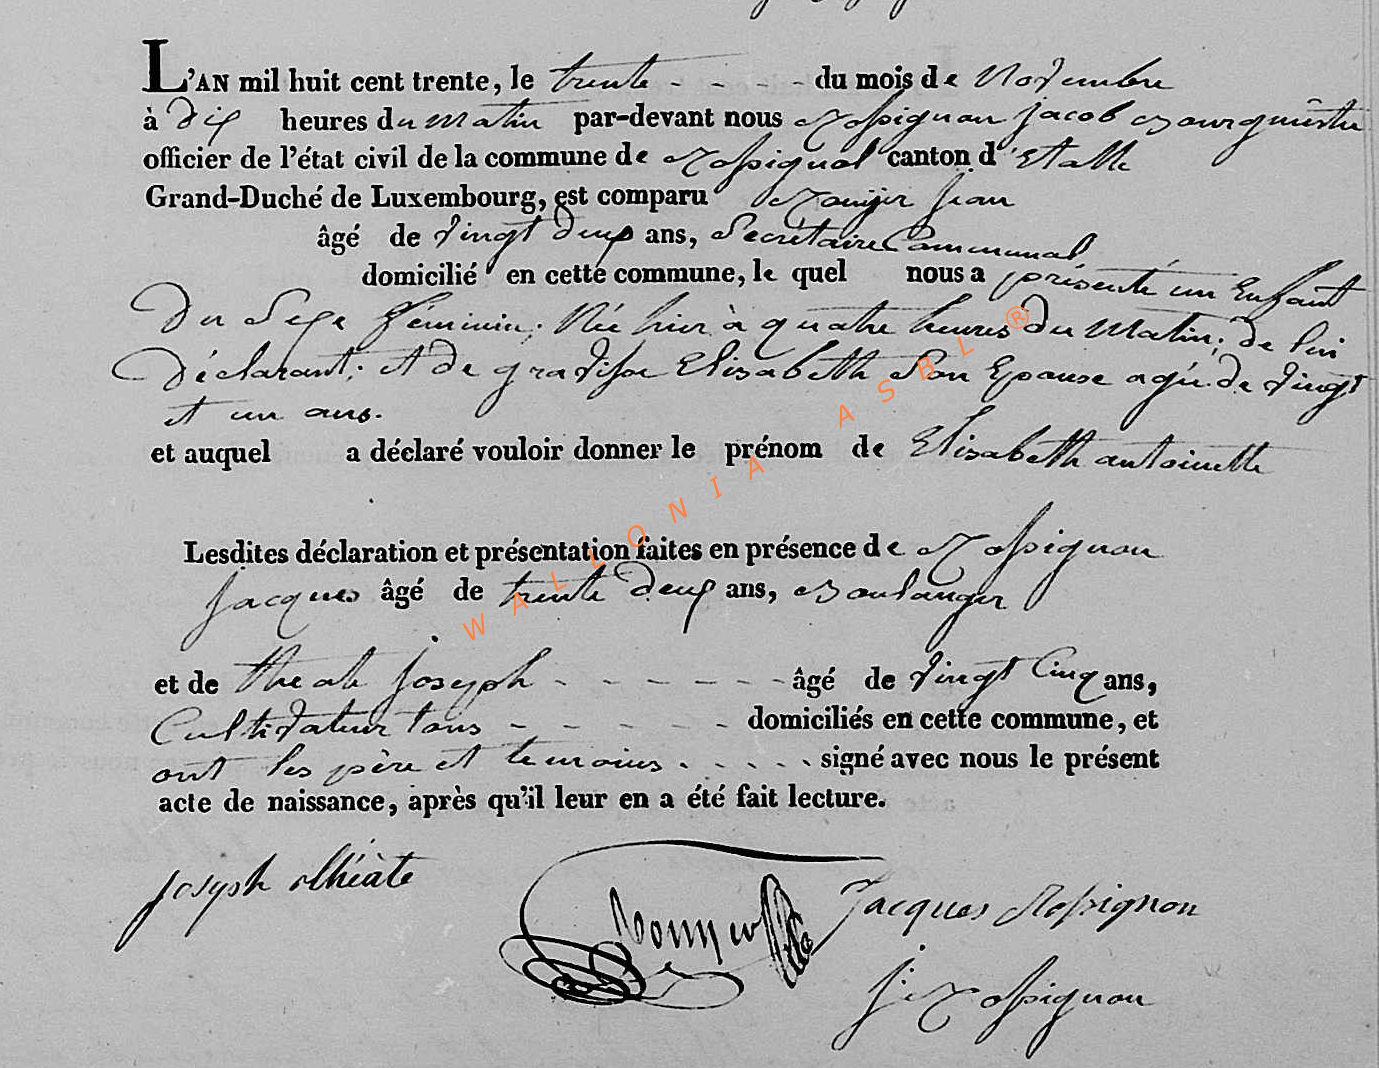 L'AN mil huit cent trente, le trente - - - - du mois de Novembre
à dix heures du matin par-devant nous Rossignon Jacob Bourgmestre
officier de l'état civil de la commune de Rossignol canton d'Etalle
Grand-Duché de Luxembourg, est comparu Jean
âgé de vingt deux ans, Secrétaire Communal
domicilié en cette commune, le quel nous a présenté un Enfant
du Sexe féminin. Née hier à quatre heures du Matin, de lui
Déclarant. et de Elisabeth Son Epouse agée de vingt
et un ans.
et auquel a déclaré vouloir donner le prénom de Elisabeth antoinette
Lesdites déclaration et présentation faites en présence de Rossignon
Jacques âgé de trente deux ans, Boulanger
et de théate Joseph - - - - - - - âgé de vingt Cinq ans,
Cultivateur tous - - - - - domiciliés en cette commune, et
ont les père et temoins . . . . . signé avec nous le présent
acte de naissance, après qu'il leur en a été fait lecture.
Joseph théâte
Jacques Rossignon
J: Rossignon
WALLONIA ASBL ®